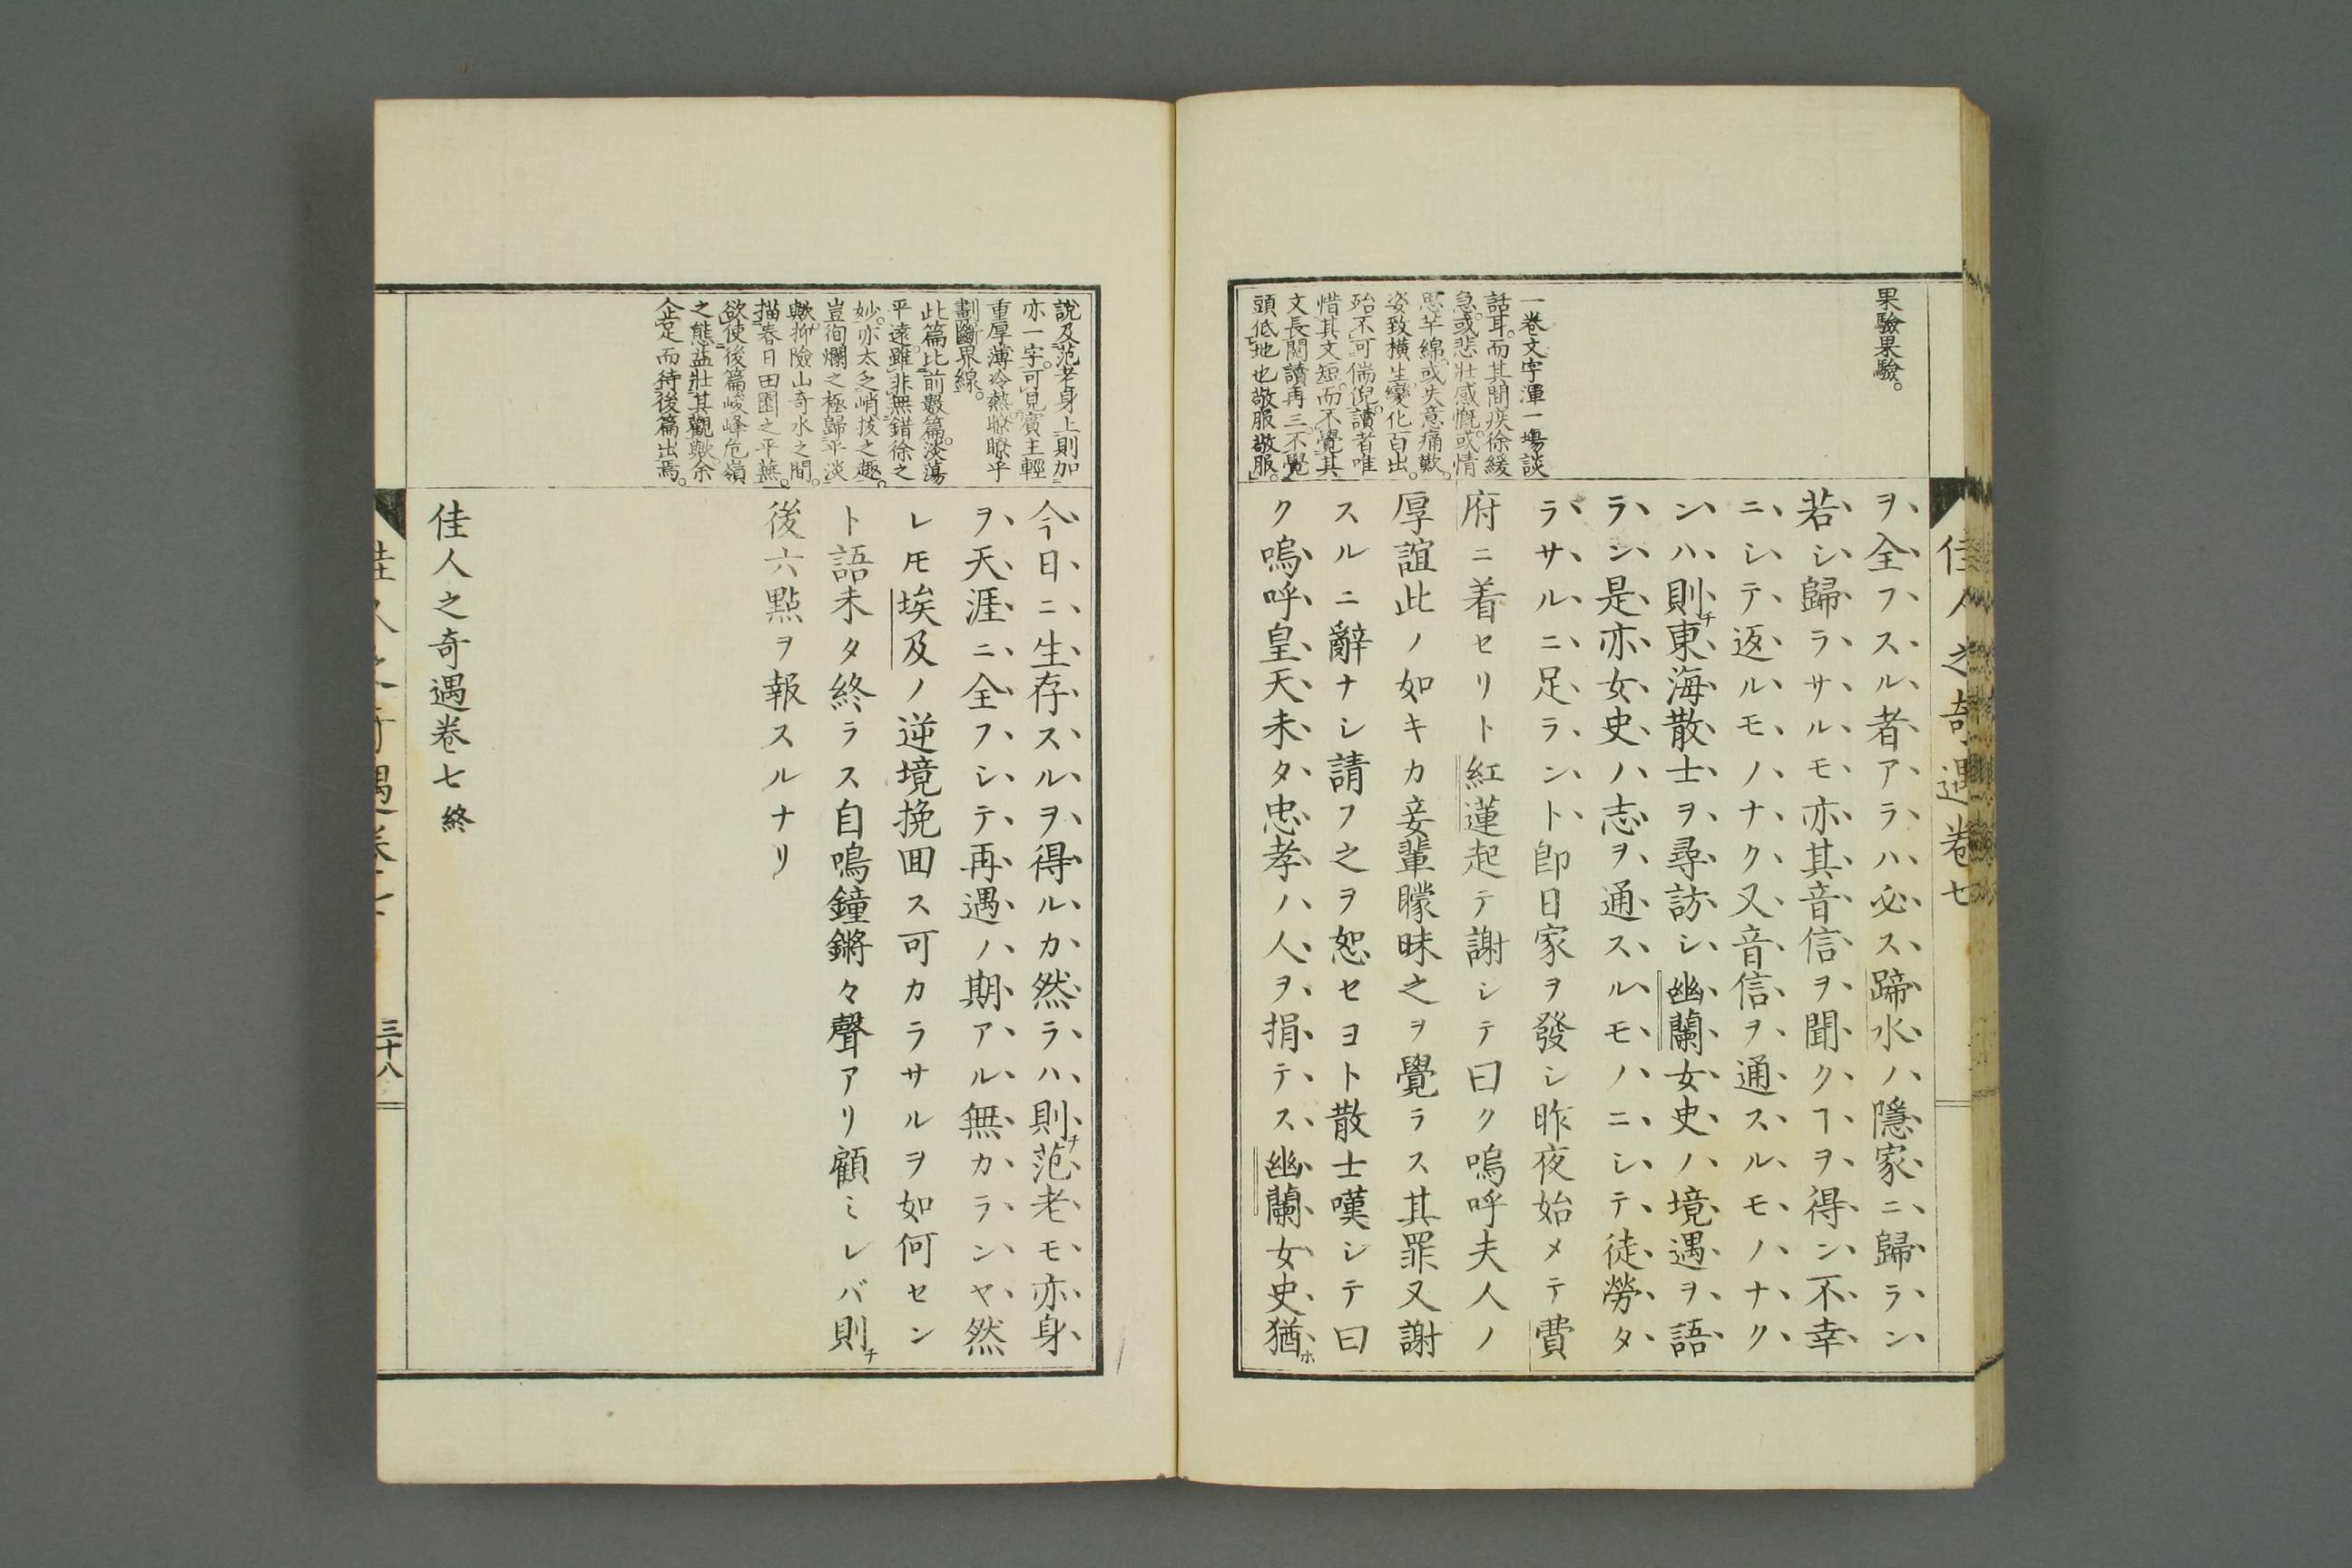 佳人之奇遇卷七
果驗果驗。
一卷文字渾一場談
話耳。而其間疾徐緩
急。或悲壯感慨。或情
思芊綿。或失意痛歎。
姿致橫生。變化百出。
殆不可倘倪。讀者唯
惜其文短。而不覺其
文長。閱讀再三。不覺
頭低地也敬服敬服。
ヲ全フスル者アラハ必ス蹄水ノ隱家ニ歸ラン
若シ歸ラサルモ亦其音信ヲ聞クヿヲ得ン不幸
ニシテ返ルモノナク又音信ヲ通スルモノナク
ンハ則チ東海散士ヲ尋訪シ幽蘭女史ノ境遇ヲ語
ラン是亦女史ノ志ヲ通スルモノニシテ徒勞タ
ラサルニ足ラント卽日家ヲ發シ昨夜始メテ費
府ニ着セリト紅蓮起テ謝シテ曰ク嗚呼夫人ノ
厚誼此ノ如キカ妾輩矇昧之ヲ覺ラス其罪又謝
スルニ辭ナシ請フ之ヲ恕セヨト散士嘆シテ曰
ク嗚呼皇天未タ忠孝ノ人ヲ捐テス幽蘭女史猶ホ
說及范老身上則加
亦一字。可見賓主輕
重厚薄冷熱。瞭瞭乎
劃斷界線。
此篇比前數篇。淡蕩
平遠。雖非無錯徐之
妙。亦太乏峭拔之趣。
豈徇爛之極歸平淡
歟。抑險山奇水之間。
描春日田園之平蕪。
欲使後篇峻峰危嶺
之態益壯其觀歟。余
企足而待後篇出焉。
今日ニ生存スルヲ得ルカ然ラハ則チ范老モ亦身
ヲ天涯ニ全フシテ再遇ノ期アル無カランヤ然
レモ埃及ノ逆境挽回ス可カラサルヲ如何セン
ト語未タ終ラス自鳴鐘鏘々聲アリ顧ミレバ則チ
後六點ヲ報スルナリ
佳人之奇遇卷七終
佳人之奇遇卷七
三十八